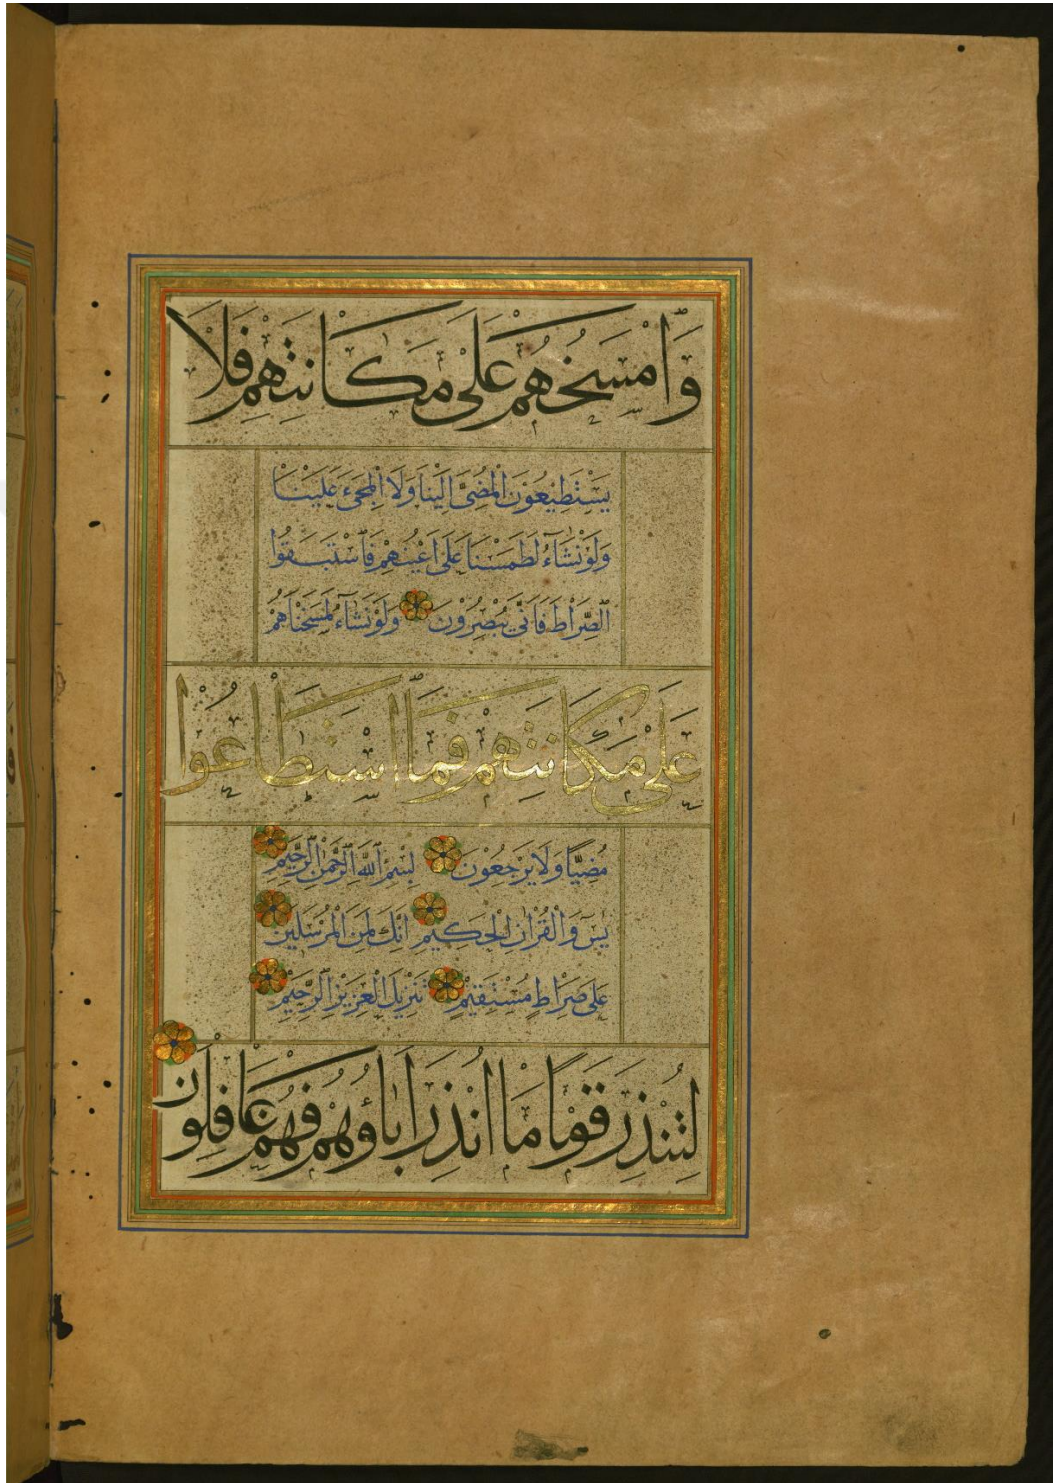 وَامْسَخْهُمْ عَلَى مَكَانَتِهِمْ فَلَا
يَسْتَطِيعُونَ الْمُضِىَّ اِلَيْنَا وَلَا الْمَجِىءَ عَلَيْنَا
وَلَوْ نَشَاءُ لَطَمَسْنَا عَلَى اَعْيُنِهِمْ فَاسْتَبَقُوا
الصِّرَاطَ فَاَنَّى يُبْصِرُونَ وَلَوْ نَشَاءُ لَمَسَخْنَاهُمْ
عَلَى مَكَانَتِهِمْ فَمَا اسْتَطَاعُوا
مُضِيًّا وَلَا يَرْجِعُونَ بِسْمِ اللّٰهِ الرَّحْمٰنِ الرَّحِيمِ
يٰسٓ وَالْقُرْاٰنِ الْحَكِيمِ اِنَّكَ لَمِنَ الْمُرْسَلِينَ
عَلَى صِرَاطٍ مُسْتَقِيمٍ تَنْزِيلَ الْعَزِيزِ الرَّحِيمِ
لِتُنْذِرَ قَوْمًا مَا اُنْذِرَ اٰبَاؤُهُمْ فَهُمْ غَافِلُونَ